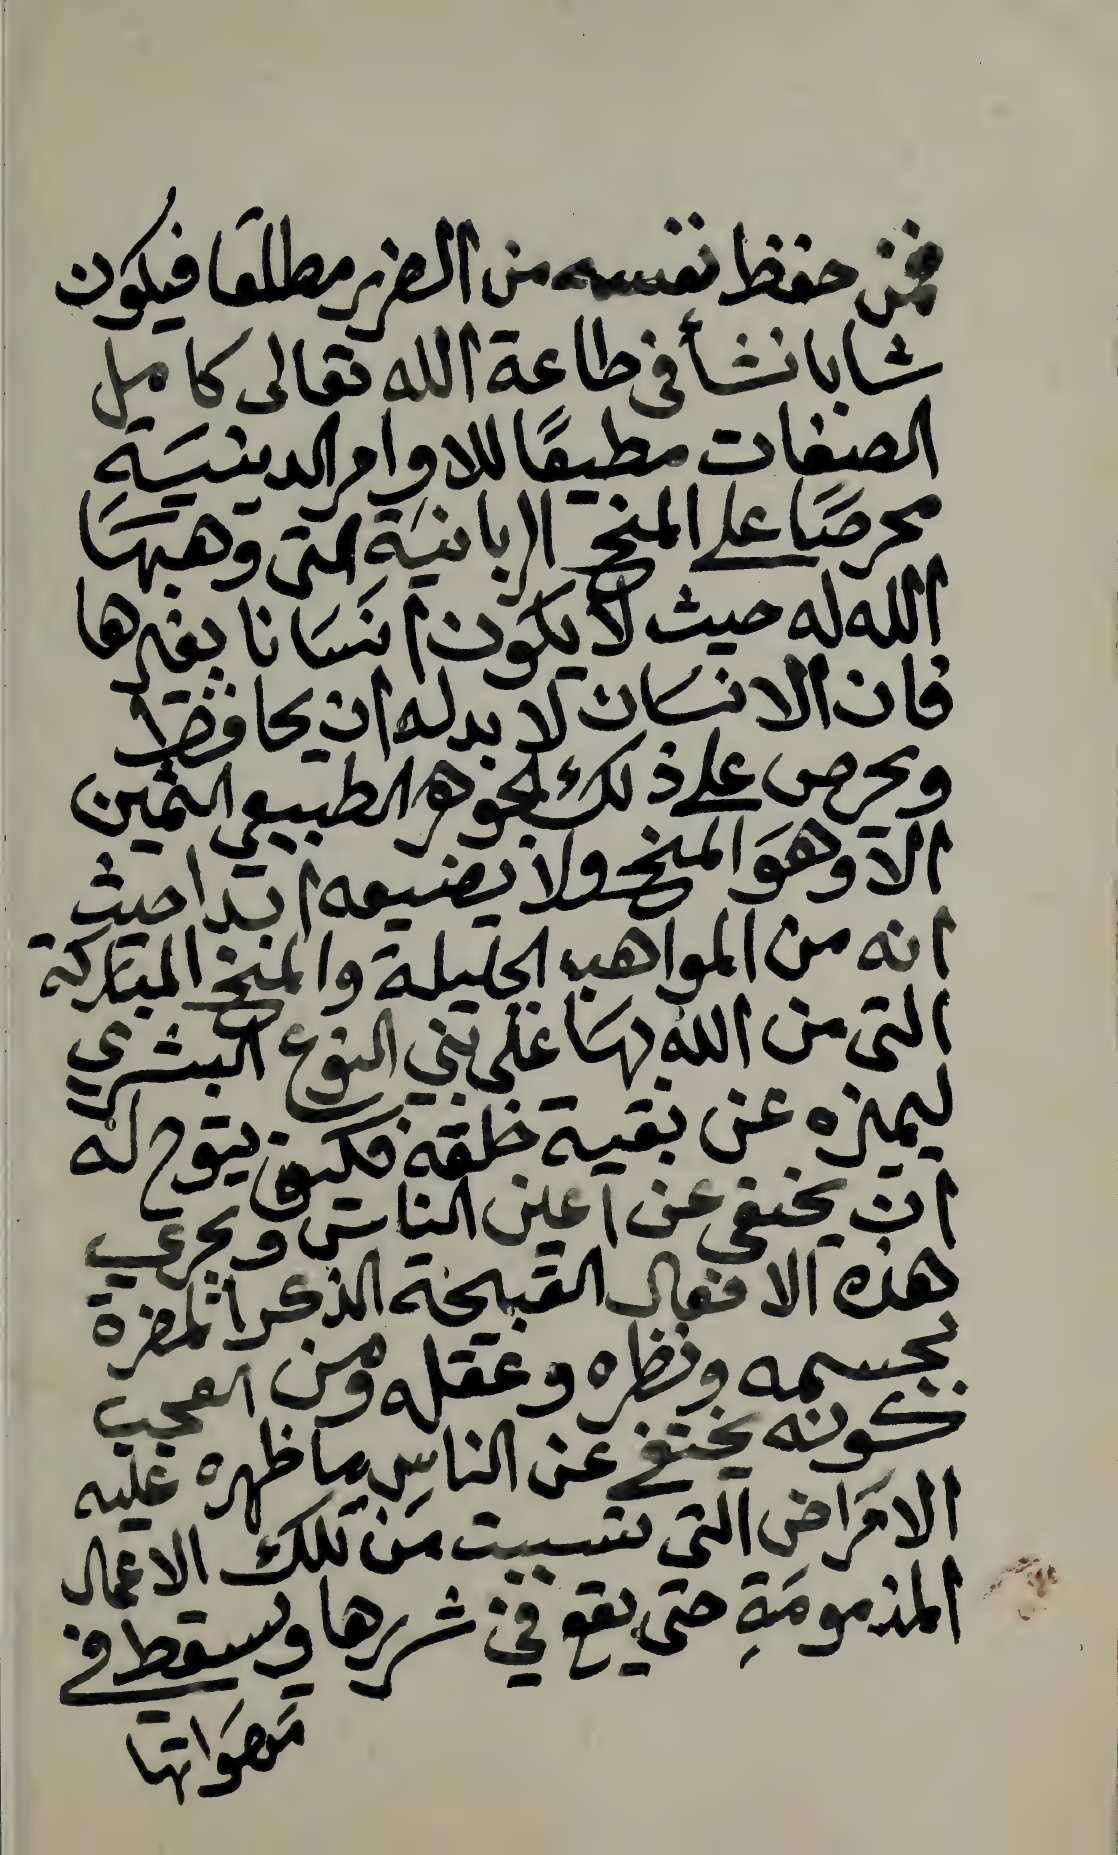 فمن حفظ نفسه من الضرر مطلقا فيكون
شابا نشأ في طاعة الله تعالى كامل
الصفات مطيعًا للاوامر الدينيَة
محرصًا على المنح الربانيَة التى وهبهَا
الله له حيث لا يكَون انسَانا بغيرها
فان الانسَان لا بد له ان يحافظ
ويحرص على ذلك الجوهر الطبيعي الثمين
الا وهوَ المنح ولا يضيعه ابدا حيث
انه من المواهب الجليلة والمنح المباركة
التى من الله بهَا على بني النوع البشري
ليميزه عن بقية خلقه فكيف يتوح له
ان يختفى عن اعين الناس ويجري
هذه الافعال القبيحة الذكر المضرة
بجسمه ونظره وعقله ومن العجب
كونه يختفي عن الناس ما ظهره عليه
الامرَاض التي تسببت مَن تلك الاعمال
المذمومَةِ حتى يقع في شررها ويسقط في
مهوَاتها